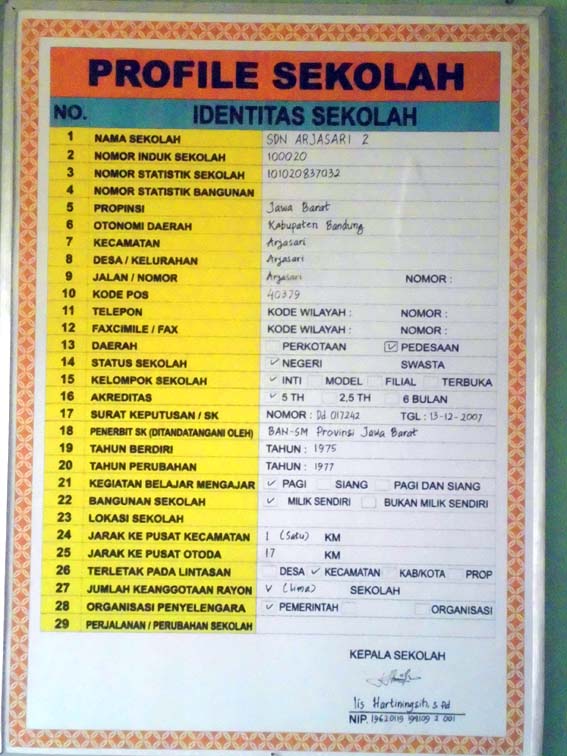 PROFILE SEKOLAH
NO. IDENTITAS SEKOLAH
1 NAMA SEKOLAH SDN ARJASARI 2
2 NOMOR INDUK SEKOLAH 100020
3 NOMOR STATISTIK SEKOLAH 101020837032
4 NOMOR STATISTIK BANGUNAN
5 PROPINSI Jawa Barat
6 OTONOMI DAERAH Kabupaten Bandung
7 KECAMATAN Arjasari
8 DESA / KELURAHAN Arjasari
9 JALAN / NOMOR Arjasari NOMOR :
10 KODE POS 40379
11 TELEPON KODE WILAYAH : NOMOR :
12 FAXCIMILE / FAX KODE WILAYAH : NOMOR :
13 DAERAH PERKOTAAN ✓ PEDESAAN
14 STATUS SEKOLAH ✓ NEGERI SWASTA
15 KELOMPOK SEKOLAH ✓ INTI MODEL FILIAL TERBUKA
16 AKREDITAS ✓ 5 TH 2,5 TH 6 BULAN
17 SURAT KEPUTUSAN / SK NOMOR : Dd 017242 TGL : 13-12-2007
18 PENERBIT SK (DITANDATANGANI OLEH) BAN-SM Provinsi Jawa Barat
19 TAHUN BERDIRI TAHUN : 1975
20 TAHUN PERUBAHAN TAHUN : 1977
21 KEGIATAN BELAJAR MENGAJAR ✓ PAGI SIANG PAGI DAN SIANG
22 BANGUNAN SEKOLAH ✓ MILIK SENDIRI BUKAN MILIK SENDIRI
23 LOKASI SEKOLAH
24 JARAK KE PUSAT KECAMATAN 1 (Satu) KM
25 JARAK KE PUSAT OTODA 17 KM
26 TERLETAK PADA LINTASAN DESA ✓ KECAMATAN KAB/KOTA PROP
27 JUMLAH KEANGGOTAAN RAYON V (lima) SEKOLAH
28 ORGANISASI PENYELENGARA ✓ PEMERINTAH ORGANISASI
29 PERJALANAN / PERUBAHAN SEKOLAH
KEPALA SEKOLAH
Iis Hartiningsih, S.Pd
NIP. 19620119 198109 2 001